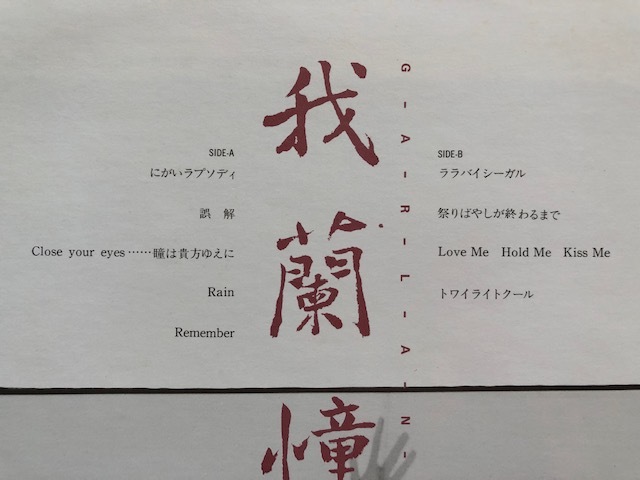 我蘭憧
G-A-R-L-A-N-
SIDE-A
にがいラプソディ
誤解
Close your eyes……瞳は貴方ゆえに
Rain
Remember
SIDE-B
ララバイシーガル
祭りばやしが終わるまで
Love Me Hold Me Kiss Me
トワイライトクール